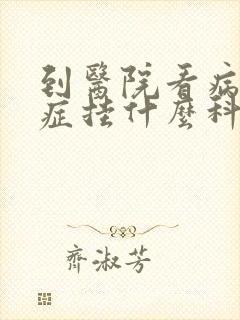 到醫院看病
症掛什麼科
齊淑芳